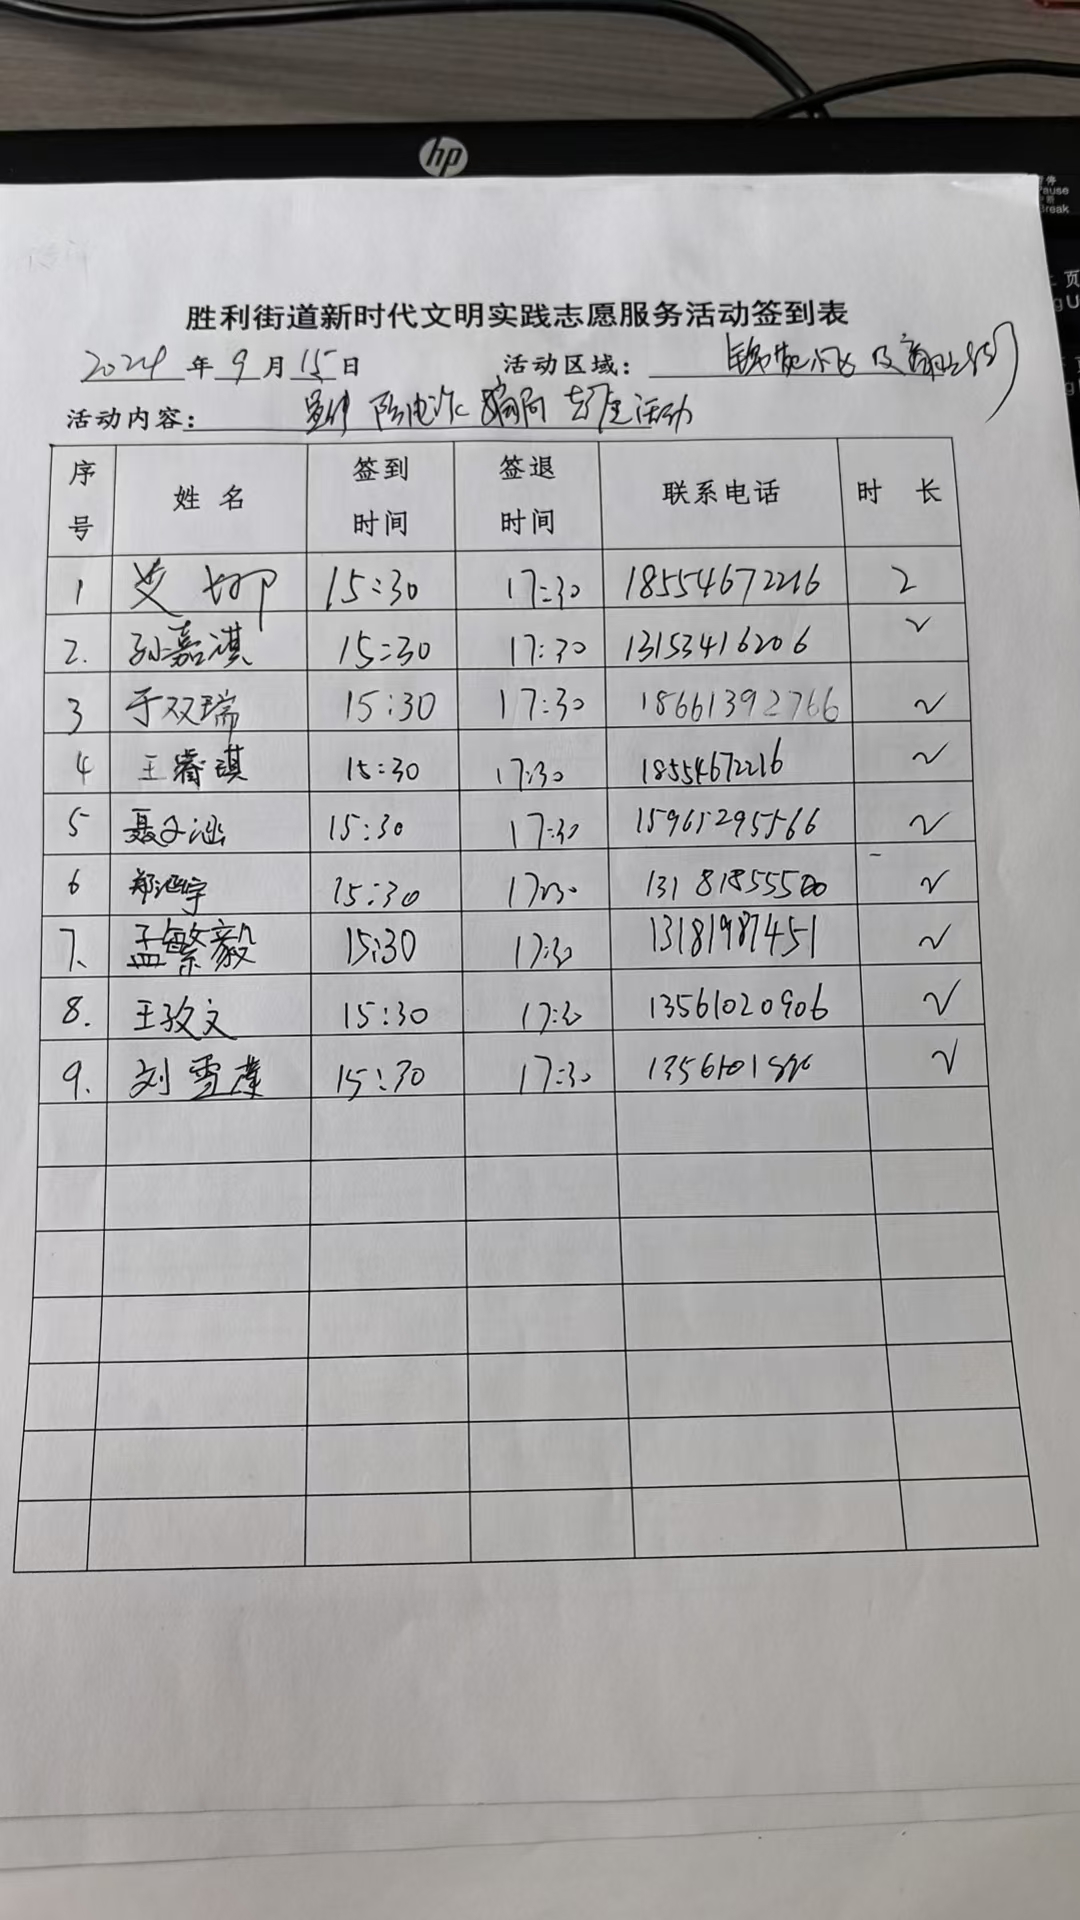 hp
Pause
Break
页
gU
胜利街道新时代文明实践志愿服务活动签到表
2024 年 9 月 15 日 活动区域：
活动内容： 活动
序号 姓名 签到时间 签退时间 联系电话 时长
1 15:30 17:30 18554672216 2
2. 孙嘉淇 15:30 17:30 13153416206 √
3 于双瑞 15:30 17:30 18661392766 √
4 王睿琪 15:30 17:30 18554672216 √
5 聂文涵 15:30 17:30 15965295566 √
6 郑 宇 15:30 17:30 √
7. 孟繁毅 15:30 17:30 13181987451 √
8. 王孜文 15:30 17:30 13561020906 √
9. 刘雪莲 15:30 17:30 √